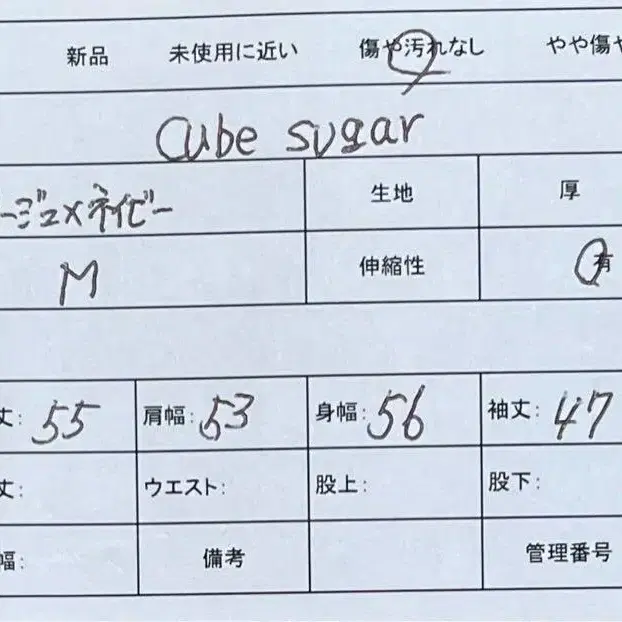 新品 未使用に近い 傷や汚れなし やや傷や
cube sugar
ージュ×ネイビー 生地 厚
M 伸縮性 有
丈: 55 肩幅: 53 身幅: 56 袖丈: 47
丈: ウエスト: 股上: 股下:
幅: 備考 管理番号